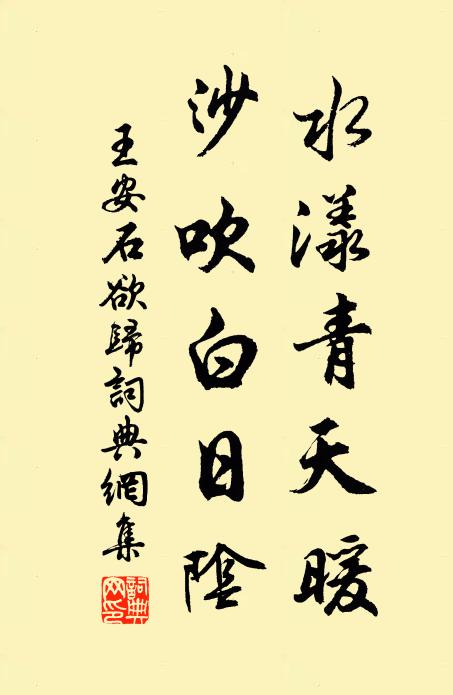 水漾青天暖
沙吹白日陰
王安石欲歸詞典網集
詞典網印